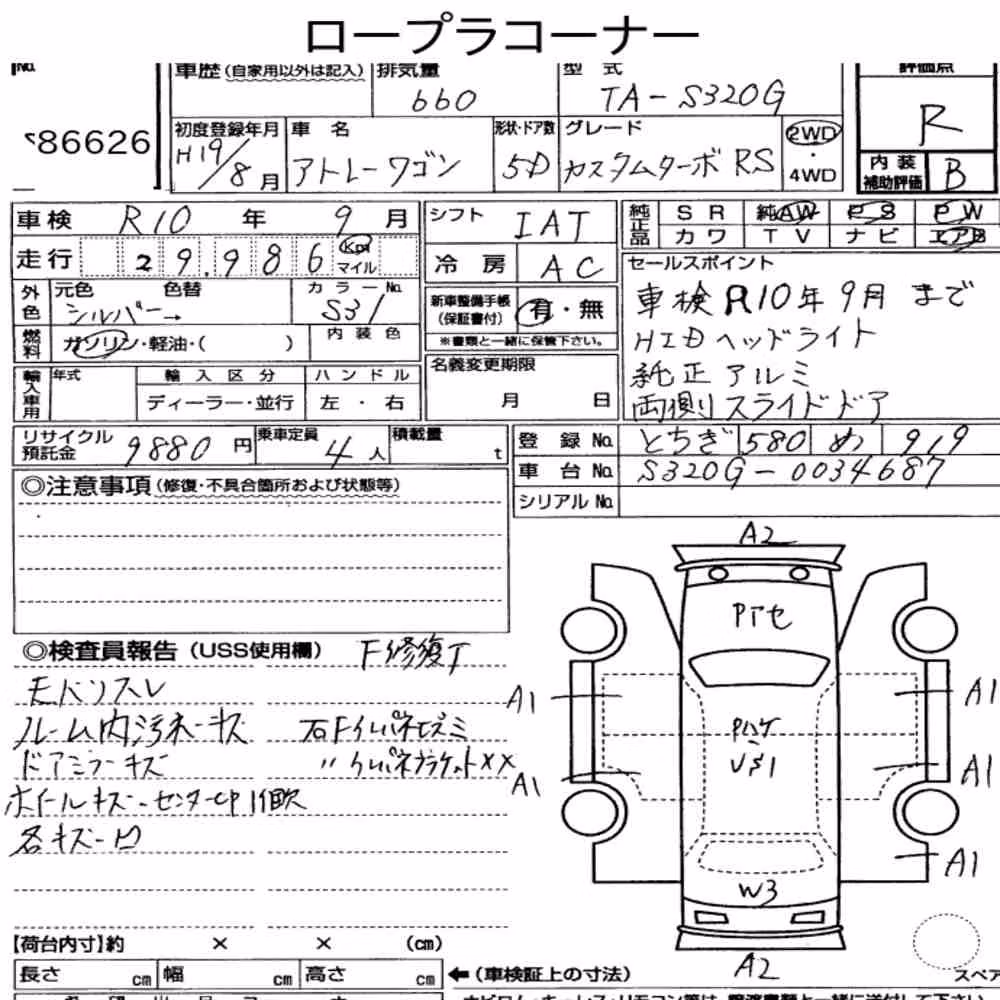 ロープラコーナー
No.
86626
車歴(自家用以外は記入) 排気量 660 型式 TA-S320G 評価点 R
初度登録年月 H19/8月 車名 アトレーワゴン 形状・ドア数 5D グレード カスタムターボ RS 2WD・4WD
内装補助評価 B
車検 R10年 9月 シフト IAT 純正品 SR 純AW PS PW
カワ TV ナビ エアB
走行 29,986 Km マイル 冷房 AC
セールスポイント
車検R10年9月まで
HIDヘッドライト
純正アルミ
両側スライドドア
外色 元色 シルバー→ 色替 カラーNo. S31
新車整備手帳(保証書付) 有・無
※書類と一緒に保管下さい。
燃料 ガソリン・軽油・( ) 内装色
名義変更期限 月 日
輸入車用 年式 輸入区分 ハンドル
ディーラー・並行 左・右
リサイクル預託金 9880円 乗車定員 4人 積載量 t
登録No. とちぎ 580 め 919
車台No. S320G-0034687
シリアルNo.
◎注意事項(修復・不具合箇所および状態等)
◎検査員報告(USS使用欄) F修復T
ルーム内汚れキズ
ドアミラーキズ
ホイールキズ センターCP1個欠
各キズ凹
A2
A1 A1
A1 A1
A1
W3
A2
【荷台内寸】約 × × (cm)
長さ cm 幅 cm 高さ cm ←(車検証上の寸法)
スペア